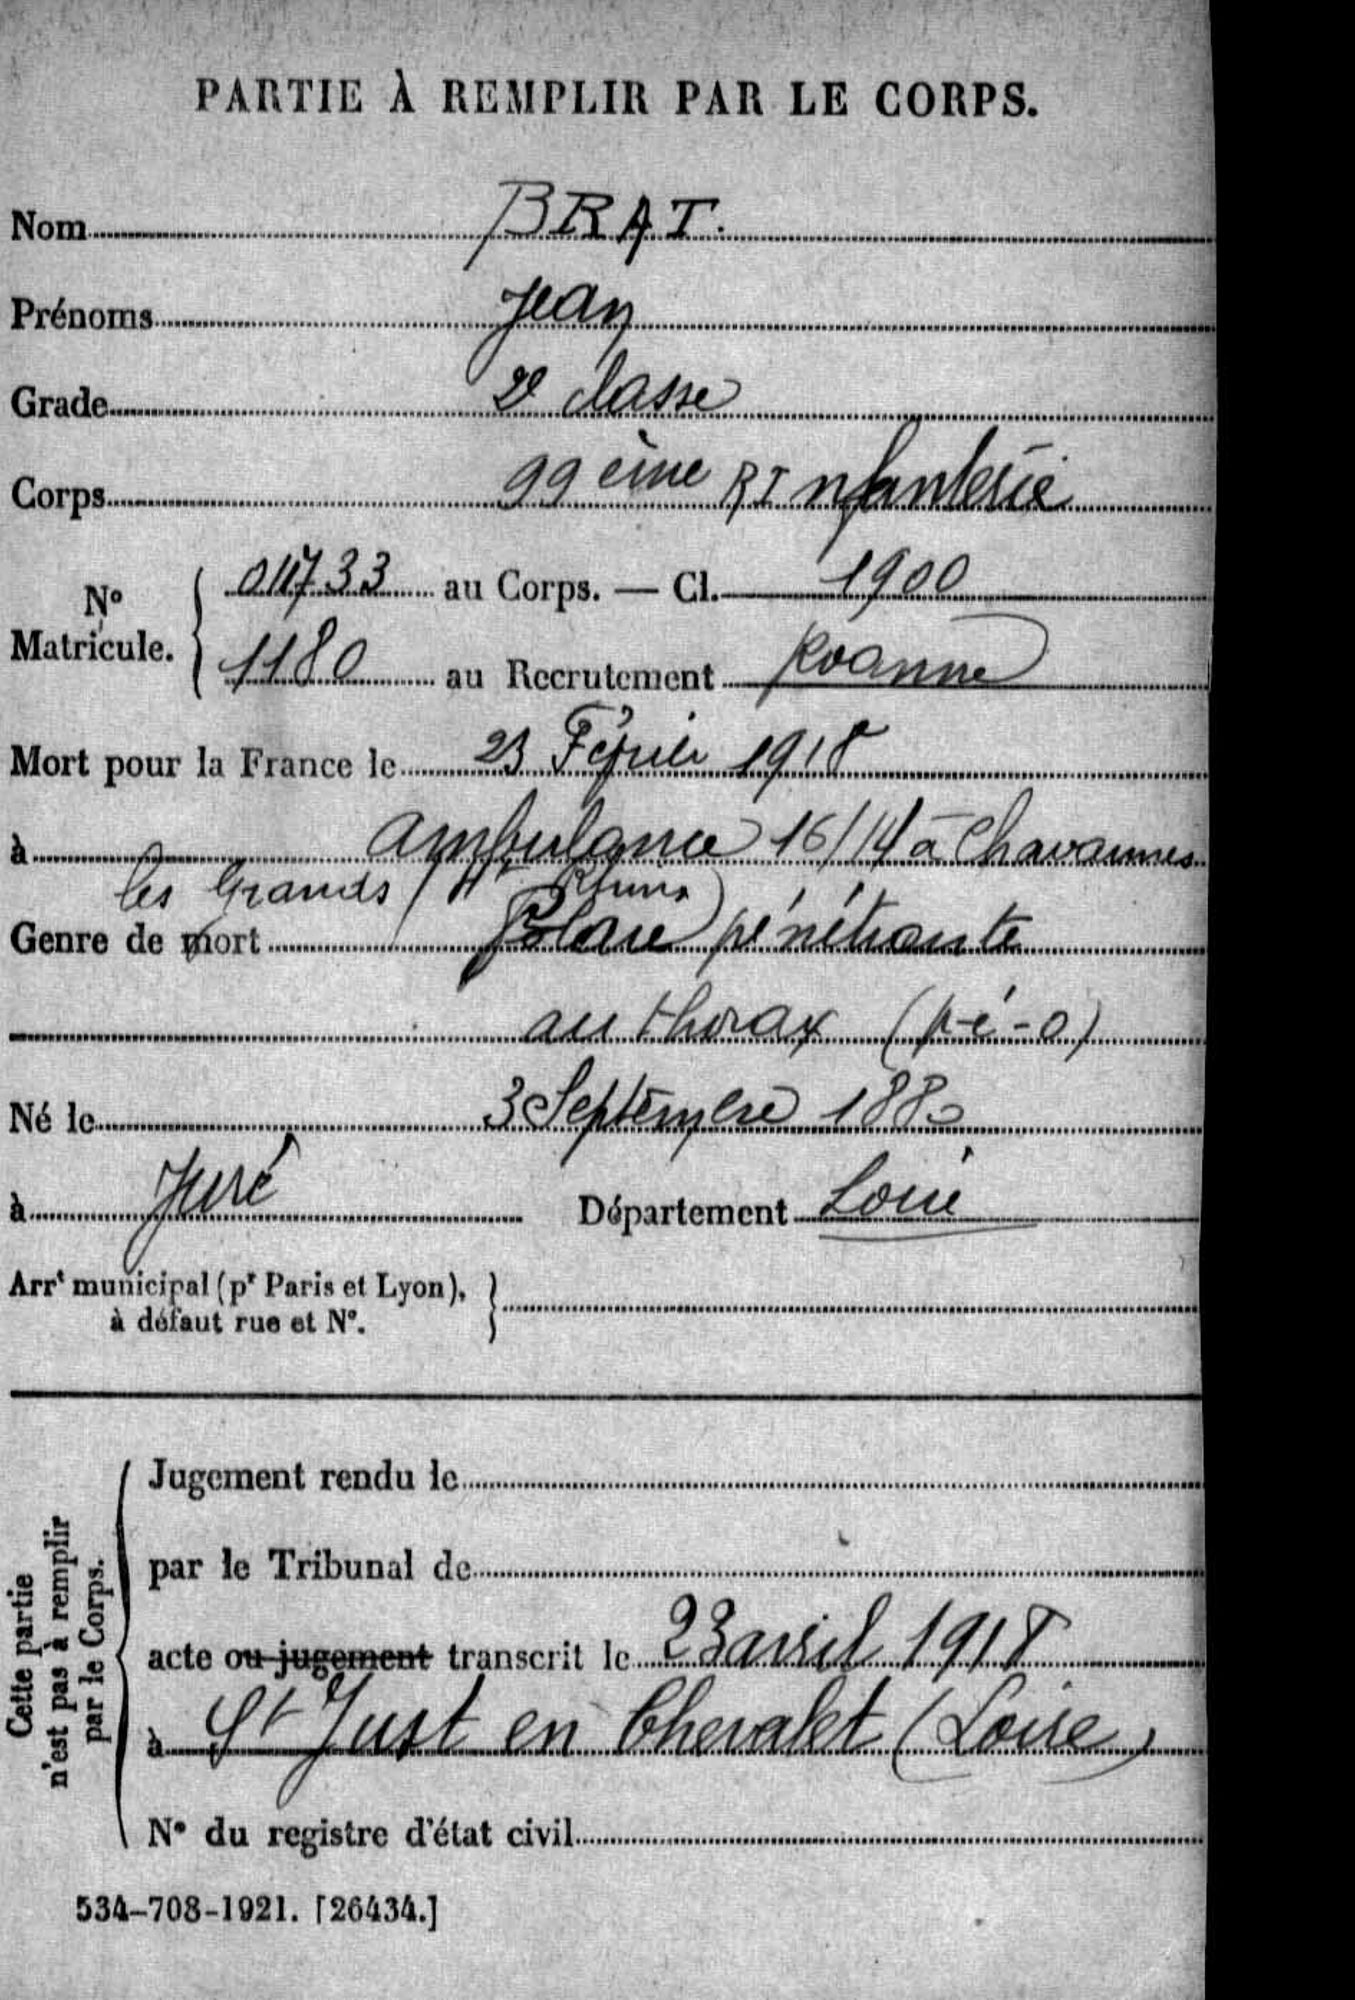 PARTIE À REMPLIR PAR LE CORPS.
Nom BRAT.
Prénoms Jean
Grade 2e classe
Corps 99 ème RI nfanterie
No Matricule. 011733 au Corps. — Cl. 1900
1180 au Recrutement Roanne
Mort pour la France le 23 Février 1918
à ambulance 16/14 à Chavannes
les Grands (Ht Rhin)
Genre de mort Plaie pénétrante
au thorax (p-é-o)
Né le 3 Septembre 1880
à Juré Département Loire
Arrt municipal (pr Paris et Lyon),
à défaut rue et N°.
Cette partie
n'est pas à remplir
par le Corps.
Jugement rendu le
par le Tribunal de
acte ou jugement transcrit le 23 avril 1918
à St Just en Chevalet (Loire)
N° du registre d'état civil
534-708-1921. [26434.]